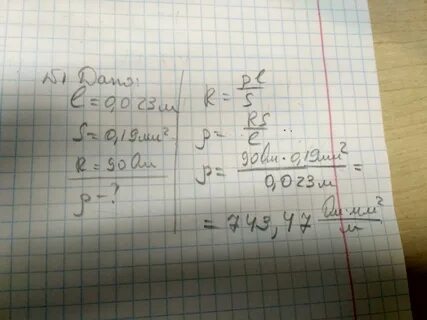 №1 Дано:
l = 0,023 м
S = 0,19 мм²
R = 90 Ом
ρ - ?
R = ρl/S
ρ = RS/l
ρ = 90 Ом · 0,19 мм² / 0,023 м =
= 743,47 Ом·мм²/м